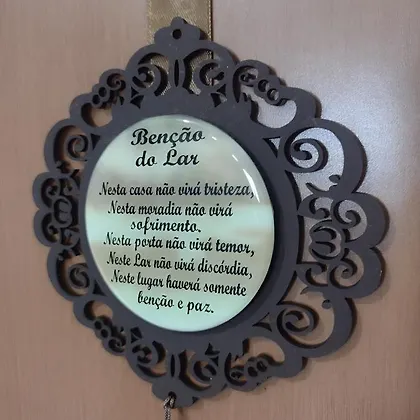 Benção
do Lar
Nesta casa não virá tristeza,
Nesta moradia não virá
sofrimento.
Nesta porta não virá temor,
Neste Lar não virá discórdia,
Neste lugar haverá somente
benção e paz.